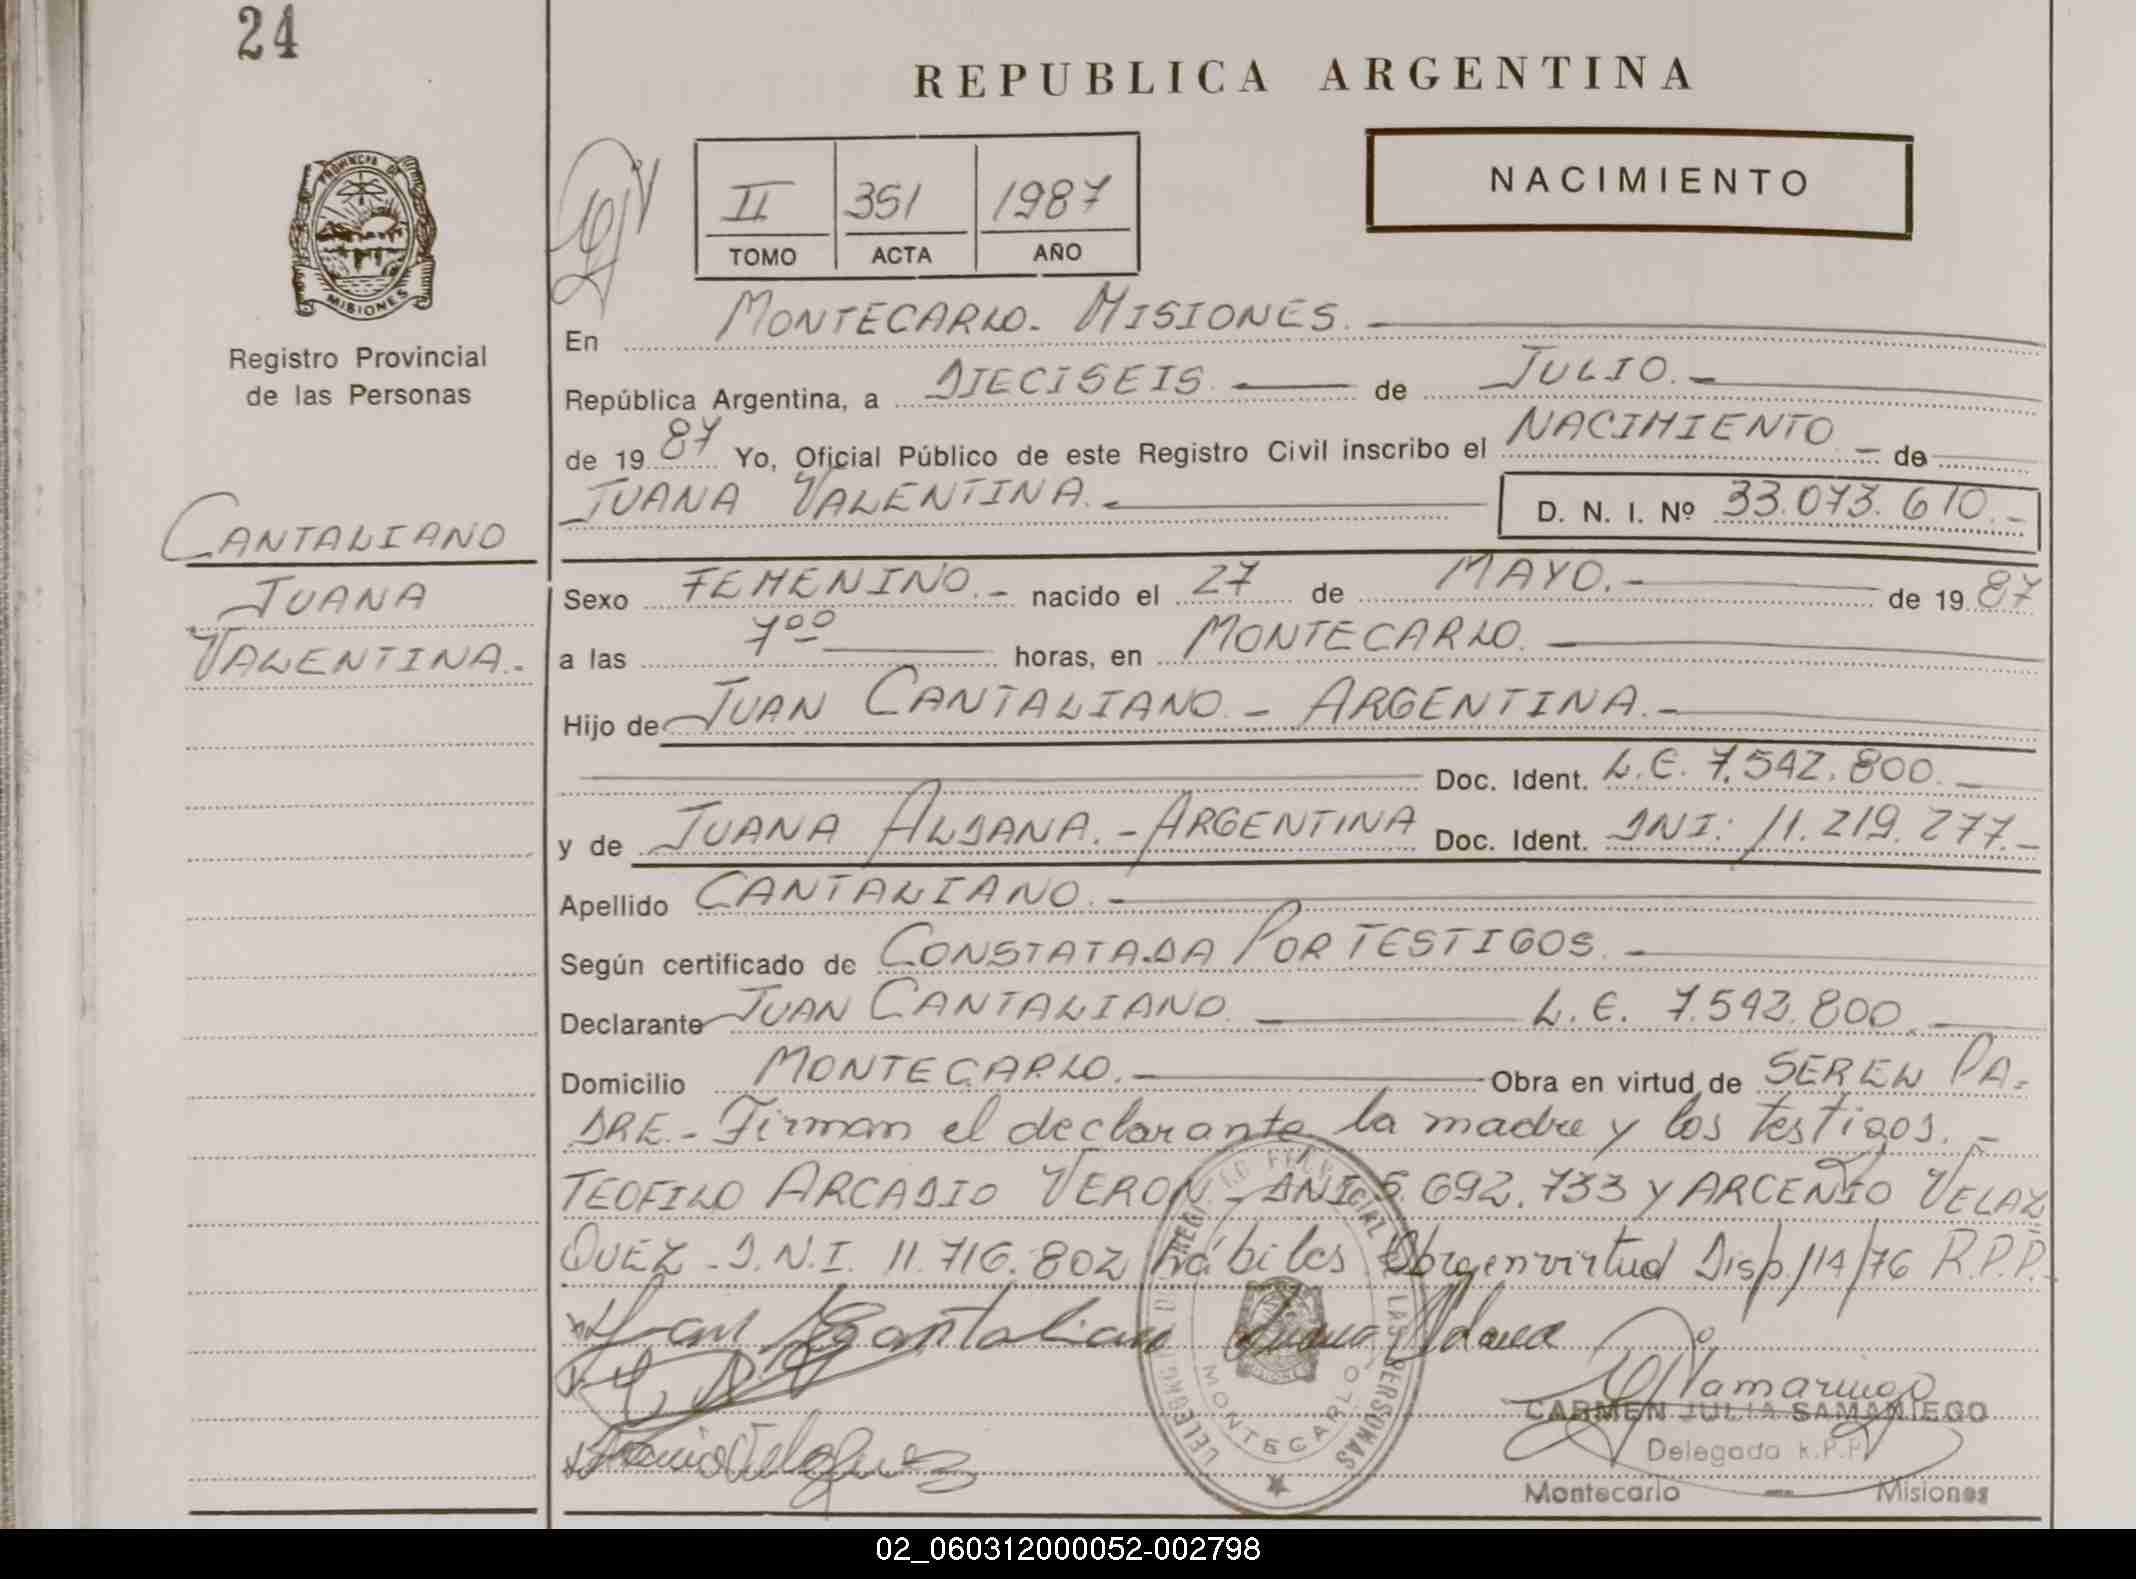 24
REPUBLICA ARGENTINA
PROVINCIA DE MISIONES
Registro Provincial
de las Personas
II 351 1987
TOMO ACTA AÑO
NACIMIENTO
En MONTECARLO. MISIONES.
República Argentina, a DIECISEIS. de JULIO.
de 1987 Yo, Oficial Público de este Registro Civil inscribo el NACIMIENTO de
JUANA VALENTINA. D. N. I. Nº 33.073.610.-
CANTALIANO
JUANA
VALENTINA.-
Sexo FEMENINO.- nacido el 27 de MAYO.- de 1987
a las 7⁰⁰ horas, en MONTECARLO.
Hijo de JUAN CANTALIANO.- ARGENTINA.-
Doc. Ident. L.E. 7.542.800.
y de JUANA ALDANA.- ARGENTINA Doc. Ident. DNI: 11.219.277.-
Apellido CANTALIANO.-
Según certificado de CONSTATADA POR TESTIGOS.-
Declarante JUAN CANTALIANO. L.E. 7.542.800.
Domicilio MONTECARLO.- Obra en virtud de SER EL PA=
DRE.- Firman el declarante la madre y los testigos.-
TEOFILO ARCADIO VERON - DNI 5.692.733 y ARCENIO VELAZ
QUEZ - D.N.I. 11.716.802 hábiles Obra en virtud Disp. 114/76 R.P.P.-
Juan Cantalian Juana Aldana
MONTECARLO
CARMEN JULIA SAMANIEGO
Delegada R.P.P.
Montecarlo - Misiones
02_060312000052-002798